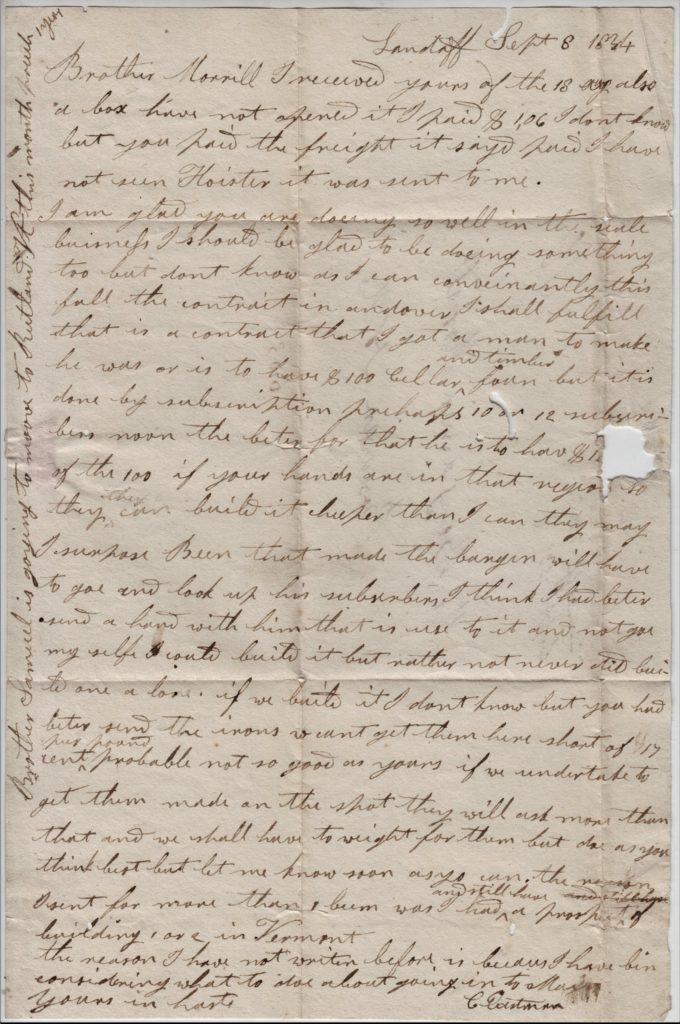 Landaff Sept 8 1834
Brother Morrill I received yours of the 18 also
a box have not opened it I paid $1,06 I dont know
but you paid the freight it sayd paid I have
not seen Hoister it was sent to me.
I am glad you are doeing so well in the scale
buisness I should be glad to be doeing something
too but dont know as I can conveinantly this
fall the contract in andover I shall fulfill
that is a contract that I got a man to make
he was or is to have $100 Cellar and timber foun but it is
done by subscription prehaps 10 or 12 subscri-
bers noon the beter for that he is to hav $1
of the 100 if your hands are in that region so
they can build it cheeper than I can they may
I surpose Been that made the bargen will have
to goe and look up his subscribers I think I had beter
send a hand with him that is use to it and not goe
my selfe I could build it but rather not never did bui-
ld one a lone. if we build it I dont know but you had
beter send the irons we cant get them here short of 17
cent per pound probable not so good as yours if we undertake to
get them made on the spot they will ask more than
that and we shall have to weight for them but doe as you
think best but let me know soon as yo can. the reason
I sent for more than 1 beem was I had and still have a prospect of
building 1 or 2 in Vermont
the reason I have not writen before is becaus I have bin
considering what to doe about going in to
yours in haste C Eastman
Brother Samuel is goeing to moove to Rutland Vt this month preach
1 year